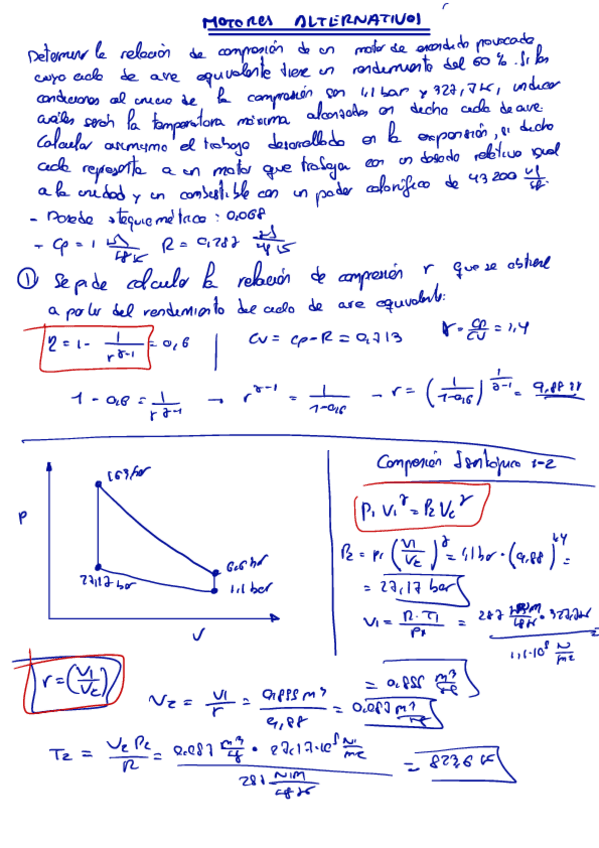 MOTORES ALTERNATIVOS
Determinar la relación de compresión de un motor de encendido provocado
cuyo ciclo de aire equivalente tiene un rendimiento del 60%. Si las
condiciones al inicio de la compresión son 1,1 bar y 327,7K, indicar
cuáles serán la temperatura máxima alcanzada en dicho ciclo de aire.
Calcular asimismo el trabajo desarrollado en la expansión, si dicho
ciclo representa a un motor que trabaja con un dosado relativo igual
a la unidad y un combustible con un poder calorífico de 43200 kJ/kg.
- Dosado estequiométrico: 0,068
- Cp = 1 kJ/kg K   R = 0,287 kJ/kg K
① Se pide calcular la relación de compresión r que se obtiene
a partir del rendimiento del ciclo de aire equivalente:
η = 1 - 1/r^(γ-1) = 0,6   Cv = Cp - R = 0,713   γ = Cp/Cv = 1,4
1 - 0,6 = 1/r^(γ-1) → r^(γ-1) = 1/(1-0,6) → r = (1/(1-0,6))^(1/(γ-1)) = 9,88
Compresión Isentrópica 1-2
P1 V1^γ = P2 V2^γ
P2 = P1 (V1/V2)^γ = 1,1 bar · (9,88)^1,4 =
= 27,17 bar
V1 = R·T1/P1 = 287 N·m/kg K · 327,7K / 1,1·10^5 N/m2
= 0,855 m3/kg
P
163 bar
27,17 bar
6,6 bar
1,1 bar
V
r = (V1/V2)
V2 = V1/r = 0,855 m3/9,88 = 0,087 m3/kg
T2 = V2 P2/R = 0,087 m3/kg · 27,17·10^5 N/m2 / 287 N·m/kg K = 823,6 K